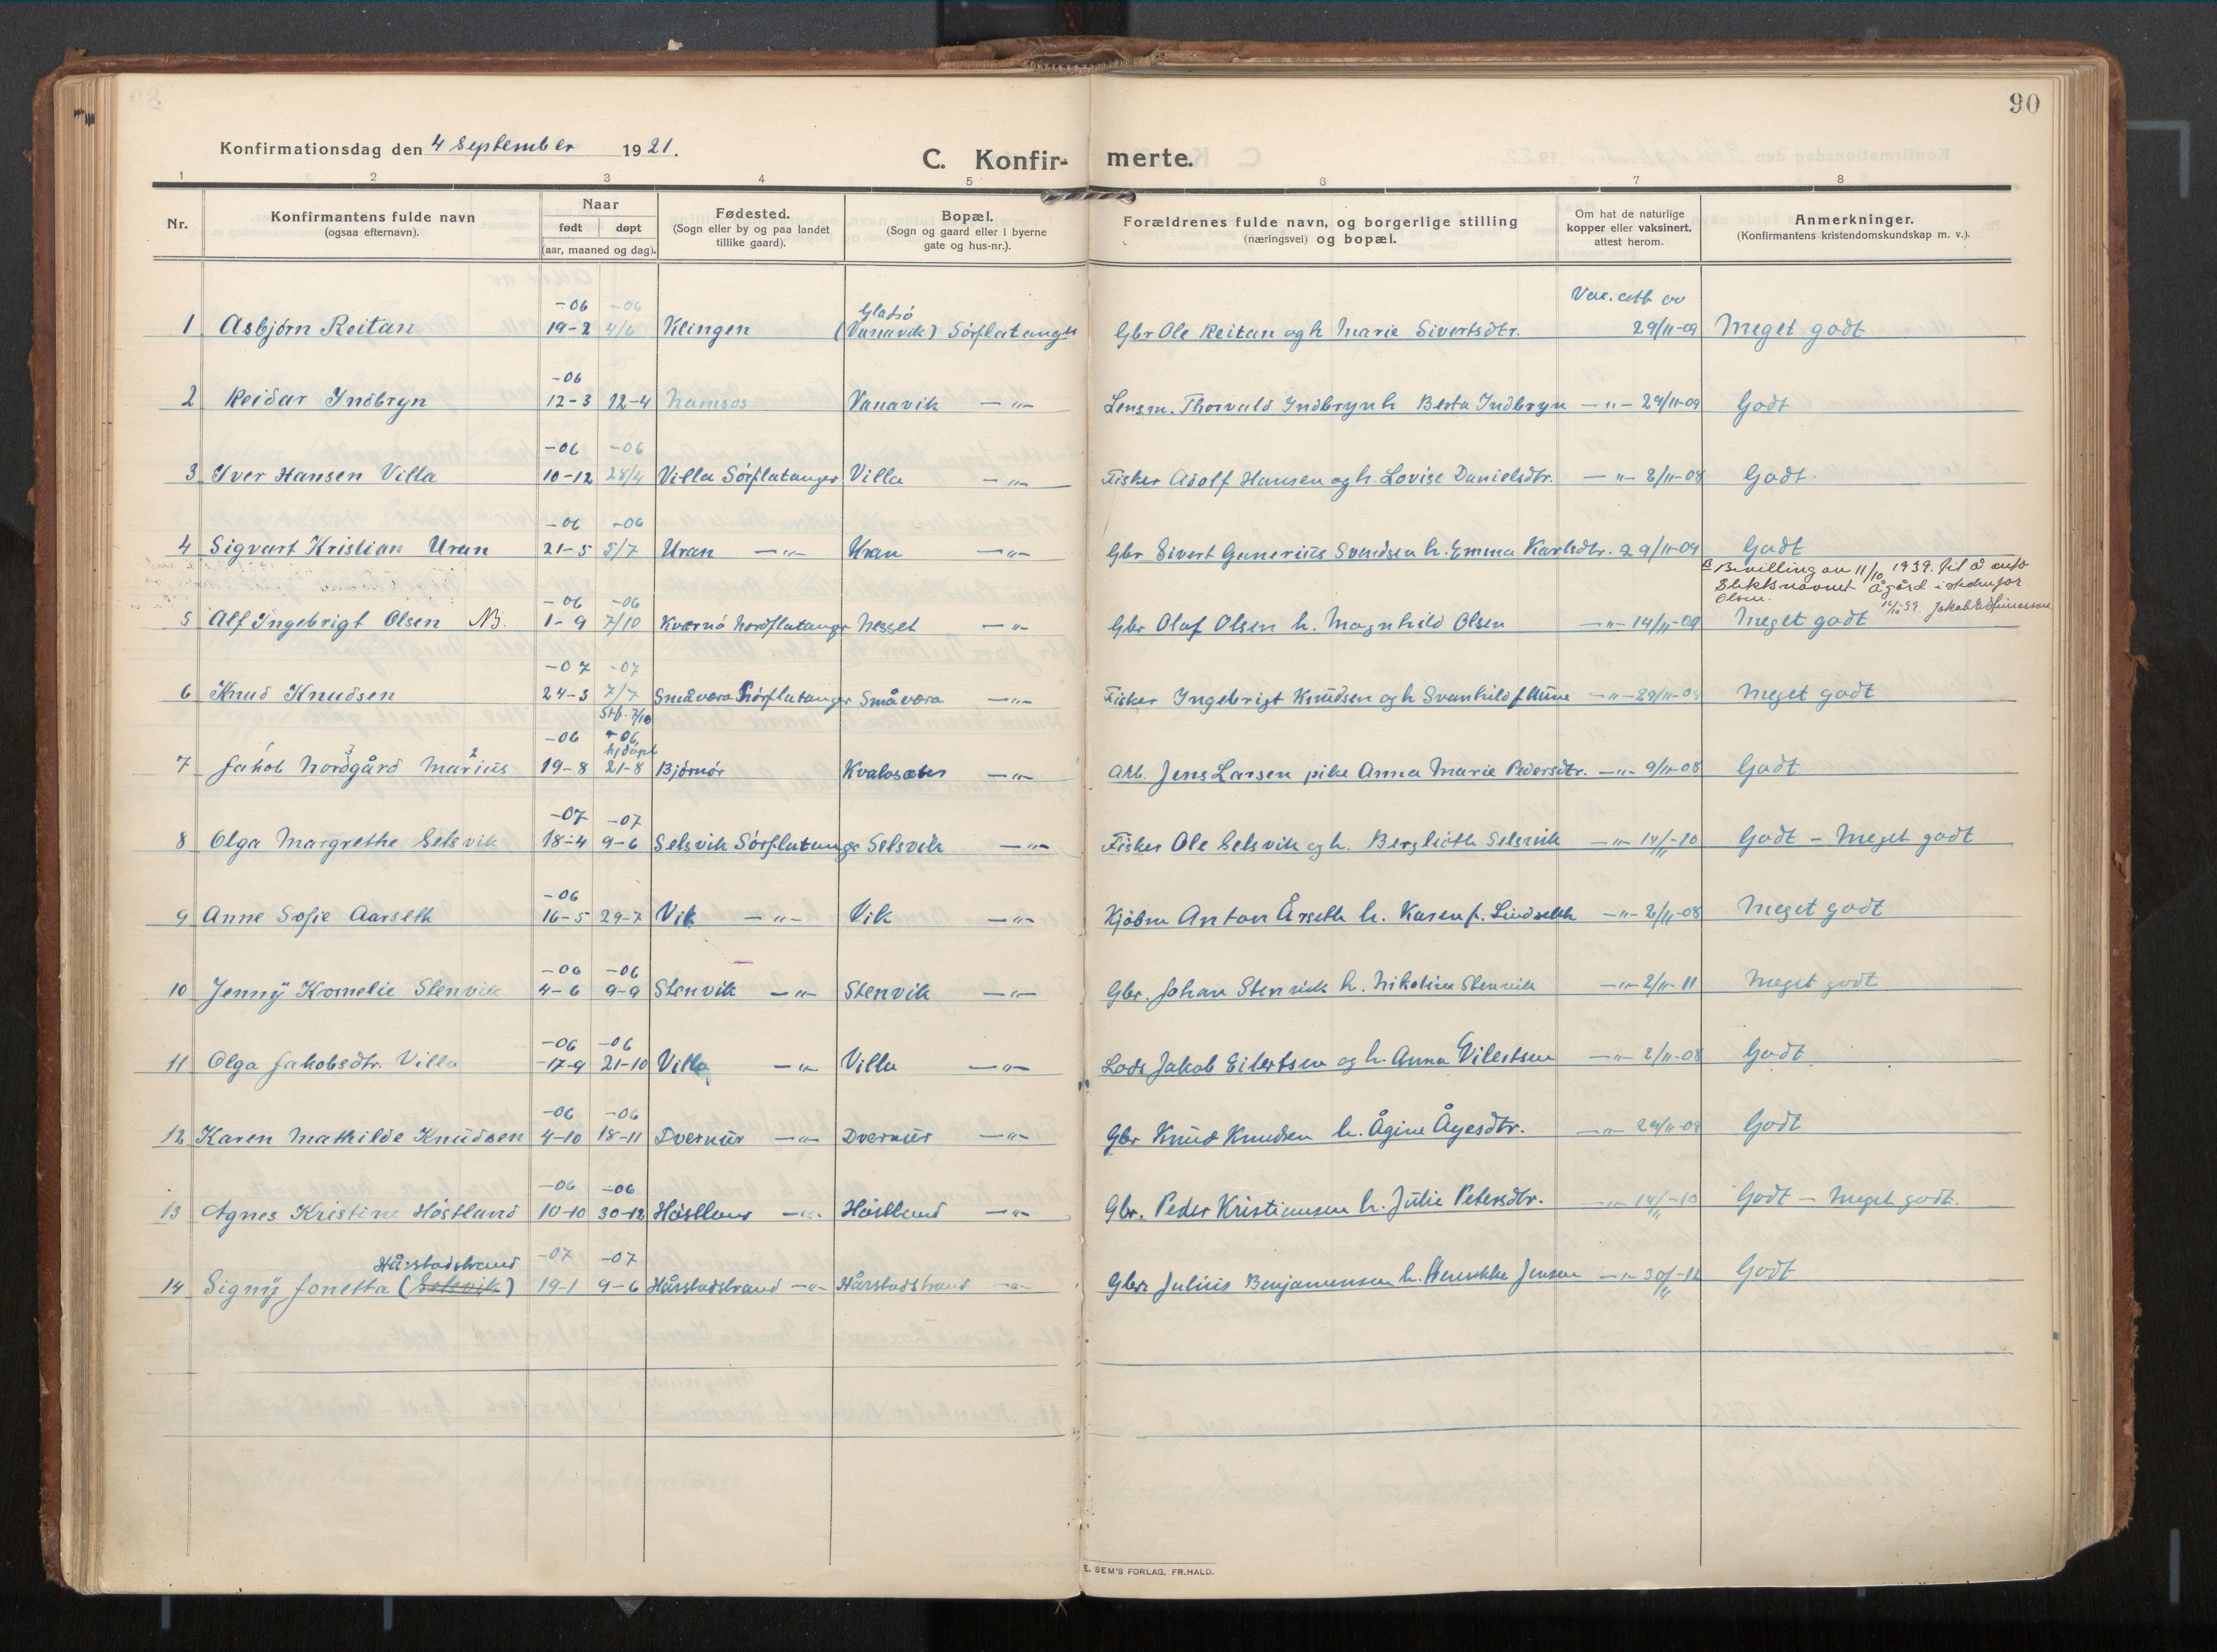 90
Konfirmationsdag den 4 September 1921.
C. Konfir- merte.
1 2 3 4 5 6 7 8
Nr. Konfirmantens fulde navn (ogsaa efternavn). Naar født døpt (aar, maaned og dag). Fødested. (Sogn eller by og paa landet tillike gaard). Bopæl. (Sogn og gaard eller i byerne gate og hus-nr.). Forældrenes fulde navn, og borgerlige stilling (næringsvei) og bopæl. Om hat de naturlige kopper eller vaksinert, attest herom. Anmerkninger. (Konfirmantens kristendomskundskap m. v.).
-06 -06 Gladsø Vac. att av
1 Asbjørn Reitan 19-2 4/6 Klingen (Vanavik) Sørflatanger Gbr Ole Reitan og h Marie Sivertsdtr. 29/11-09 Meget godt
-06
2 Reidar Indbryn 12-3 12-4 Namsos Vanavik -"- Lensm. Thorvald Indbryn h Berta Indbryn -"- 29/11-09 Godt
-06 -06
3 Iver Hansen Villa 10-12 28/4 Villa Sørflatanger Villa -"- Fisker Adolf Hansen og h. Lovise Danielsdtr. -"- 2/11-08 Godt
-06 -06
4 Sigvart Kristian Uran 21-5 5/7 Uran -"- Uran -"- Gbr Sivert Gunerius Svendsen h. Emma Karlsdtr. 29/11-09 Godt
Bevilling av 11/10 1939. til å anta
Slektsnavnet Ågård i stedenfor
Olsen. 14/10-39. Jakob
-06 -06
5 Alf Ingebrigt Olsen NB. 1-9 7/10 Kværnø Nordflatanger Nesset -"- Gbr Olaf Olsen h. Magnhild Olsen -"- 14/11-09 Meget godt
-07 -07
6 Knud Knudsen 24-3 7/7 Småværa Sørflatanger Småværa -"- Fisker Ingebrigt Knudsen og h Svanhild f Aune -"- 29/11-09 Meget godt
Stf. 7/10
-06 -06 hjdøpt
7 Jakob Nordgård Marius 19-8 21-8 Bjørnør Kvalosæter -"- Arb. Jens Larsen pike Anna Marie Pedersdtr. -"- 9/11-08 Godt
-07 -07
8 Olga Margrethe Selsvik 18-4 9-6 Selsvik Sørflatanger Selsvik -"- Fisker Ole Selsvik og h. Berglioth Selsvik -"- 14/11-10 Godt - Meget godt
-06
9 Anne Sofie Aarseth 16-5 29-7 Vik -"- Vik -"- Kjøbm Anton Årseth h. Karen f. Lindseth -"- 2/11-08 Meget godt
-06 -06
10 Jenny Kornelie Stenvik 4-6 9-9 Stenvik -"- Stenvik -"- Gbr. Johan Stenvik h. Nikoline Stenvik -"- 2/11-11 Meget godt
-06 -06
11 Olga Jakobsdtr. Villa -17-9 21-10 Villa -"- Villa -"- Lods Jakob Eilertsen og h. Anna Eilertsen -"- 2/11-08 Godt
-06 -06
12 Karen Mathilde Knudsen 4-10 18-11 Dvernur -"- Dvernur -"- Gbr Knud Knudsen h. Ågine Ågesdtr. -"- 29/11-09 Godt
-06 -06
13 Agnes Kristine Høstland 10-10 30-12 Høstland -"- Høstland -"- Gbr. Peder Kristiansen h. Julie Petersdtr. -"- 14/11-10 Godt - Meget godt.
Hårstadstrand -07 -07
14 Signy Jonetta (Selsvik) 19-1 9-6 Hårstadstrand -"- Hårstadstrand -"- Gbr. Julius Benjaminsen h. Henrikke Jensen -"- 30/11-12 Godt
E. SEM'S FORLAG, FR.HALD.